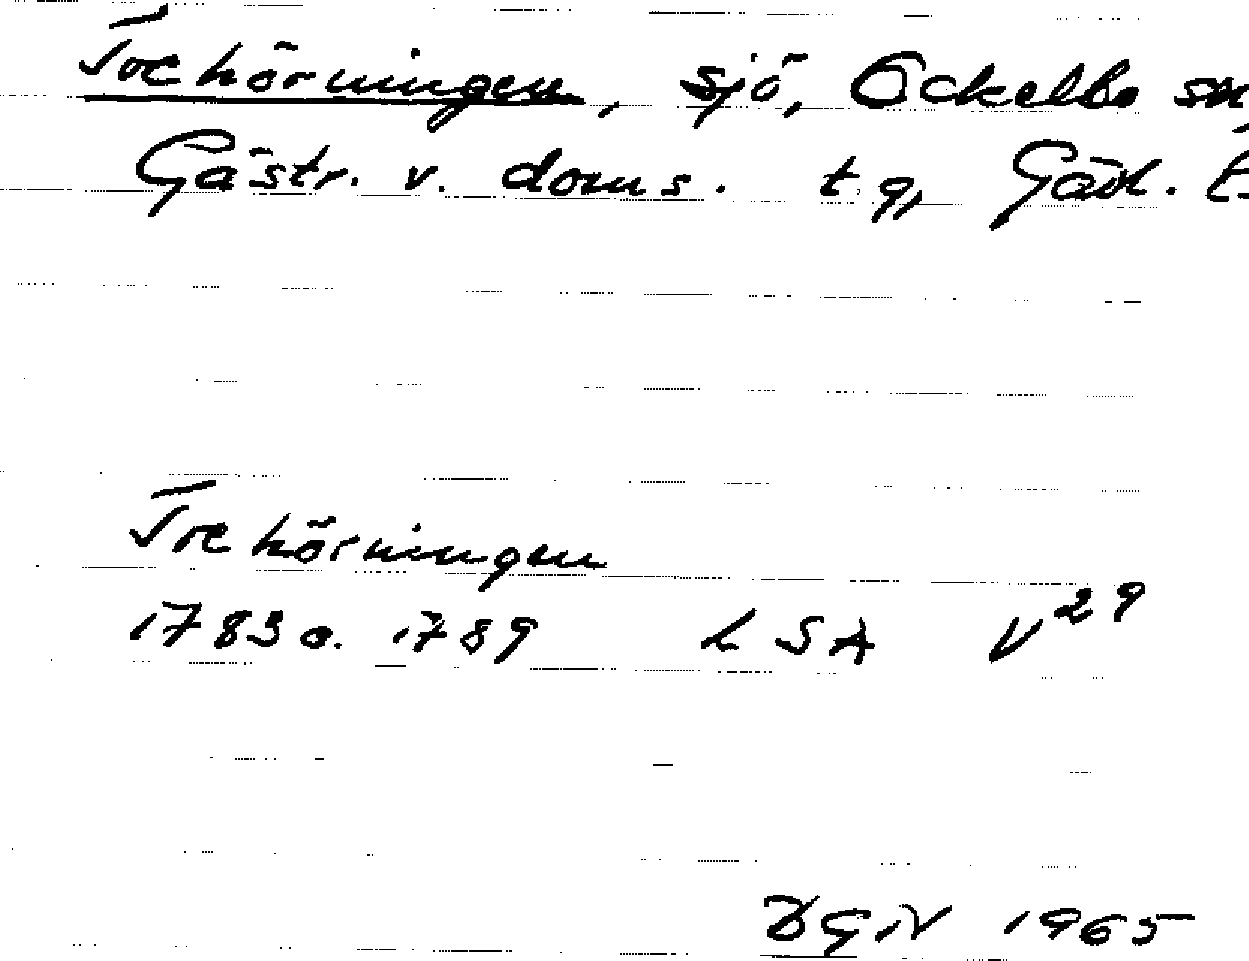 Trehörningen, sjö, Ockelbo sn,
Gästr. v. doms. tg, Gävl. l.
Trehörningen
1783 o. 1789 LSA V29
DGN 1965